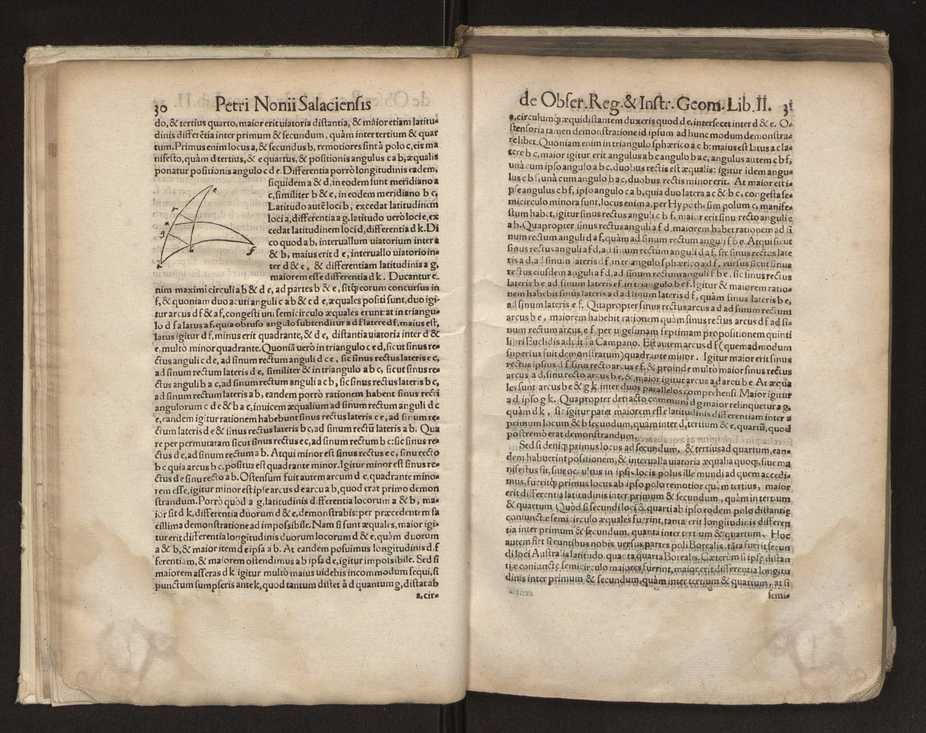 30 Petri Nonii Salaciensis
do, & tertius quarto, maior erit viatoria distantia, & maior etiam latitu-
dinis differẽtia inter primum & secundum, quàm inter tertium & quar
tum. Primus enim locus a, & secundus b, remotiores sint à polo c, eis ma
nifesto, quàm d tertius, & e quartus, & positionis angulus c a b, æqualis
ponatur positionis angulo c d e. Differentia porrò longitudinis eadem,
siquidem a & d, in eodem sunt meridiano a
c, similiter b & e, in eodem meridiano b c.
Latitudo autẽ loci b, excedat latitudinem
loci a, differentia a g. latitudo verò loci e, ex
cedat latitudinem loci d, differentia d k. Di
co quod a b, interuallum viatorium inter a
& b, maius erit d e, interuallo viatorio in-
ter d & e, & differentiam latitudinis a g,
maiorem esse differentia d k. Ducantur e
nim maximi circuli a b & d e, ad partes b & e, sitq́; eorum concursus in
f, & quoniam duo acuti anguli c a b & c d e, æquales positi sunt, duo igi-
tur arcus d f & a f, congesti uni semicirculo æquales erunt: at in triangu-
lo d f a latus a f, quia obtuso angulo subtenditur a d f latere d f, maius est,
latus igitur d f, minus erit quadrante, & d e, distantia viatoria inter d &
e, multò minor quadrante. Quoniã verò in triangulo c e d, sicut sinus re-
ctus anguli c d e, ad sinum rectum anguli d c e, sic sinus rectus lateris e c,
ad sinum rectum lateris d e, similiter & in triangulo a b c, sicut sinus re-
ctus anguli b a c, ad sinum rectum anguli a c b, sic sinus rectus lateris b c,
ad sinum rectum lateris a b, eandem porrò rationem habent sinus recti
angulorum c d e & b a c, inuicem æqualium ad sinum rectum anguli d c
e, eandem igitur rationem habebunt sinus rectus lateris e c, ad sinum re-
ctum lateris d e & sinus rectus lateris b c, ad sinum rectũ lateris a b. Qua
re per permutatam sicut sinus rectus e c, ad sinum rectum b c: sic sinus re-
ctus d e, ad sinum rectum a b. Atqui minor est sinus rectus e c, sinu recto
b c quia arcus b c, positus est quadrante minor. Igitur minor est sinus re-
ctus d e sinu recto a b. Ostensum fuit autem arcum d e, quadrante mino-
rem esse, igitur minor est ipse arcus d e arcu a b, quod erat primo demon
strandum. Porrò quòd a g, latitudinis differentia locorum a & b, ma-
ior sit d k, differentia duorum d & e, demonstrabis: per præcedentem fa
cillima demonstratione ad impossibile. Nam si sunt æquales, maior igi-
tur erit differentia longitudinis duorum locorum d & e, quàm duorum
a & b, & maior item d e ipsa a b. At eandem posuimus longitudinis dif
ferentiam, & maiorem ostendimus a b ipsa d e, igitur impossibile. Sed si
maiorem asseras d k igitur multò maius videbis incommodum sequi, si
punctum sumpseris ante k, quod tantum distet à d quantum g, distat ab
a, cir-
de Obser. Reg. & Instr. Geom. Lib. II. 31
a, circulumq́; æquidistantem duxeris quod d e, intersecet inter d & e. O-
stensoria tamen demonstratione id ipsum ad hunc modum demonstra-
re libet. Quoniam enim in triangulo sphærico a c b: maius est latus a c la-
tere b c, maior igitur erit angulus a b c angulo b a c, angulus autem c b f,
unà cum ipso angulo a b c, duobus rectis est æqualis: igitur idem angu-
lus c b f, unà cum angulo b a c, duobus rectis minor erit. At maior est i-
pse angulus c b f, ipso angulo c a b, quia duo latera a c & b c, congesta se-
micirculo minora sunt, locus enim a, per Hypothesim polum c, manife-
stum habet, igitur sinus rectus anguli c b f, maior erit sinu recto anguli c
a b. Quapropter sinus rectus anguli a f d, maiorem habet rationem ad si
num rectum anguli d a f, quàm ad sinum rectum anguli f b e. Atqui sicut
sinus rectus anguli a f d, ad sinum rectum anguli d a f, sic sinus rectus late
ris a d, ad sinum lateris d f, in triangulo sphærico a d f, rursus sicut sinus
rectus eiusdem anguli a f d, ad sinum rectum anguli f b e, sic sinus rectus
lateris b e ad sinum lateris e f, in triangulo b e f. Igitur & maiorem ratio-
nem habebit sinus lateris a d ad sinum lateris d f, quàm sinus lateris b e,
ad sinum lateris e f. Quapropter sinus rectus arcus a d ad sinum rectum
arcus b e, maiorem habebit rationem quàm sinus rectus arcus d f ad si-
num rectum arcus, e f, per uigesimam septimam propositionem quinti
libri Euclidis adiectã a Campano. Est autem arcus d f (quemadmodum
superius fuit demonstratum) quadrante minor. Igitur maior erit sinus
rectus ipsius d f sinu recto arcus e f, & proinde multo maior sinus rectus
arcus a d, sinu recto arcus b e, & maior igitur arcus a d arcu b e. At æqua
les sunt arcus b e & g k inter duos parallelos comprehensi. Maior igitur
a d, ipso g k. Quapropter detracto communi d g maior relinquetur a g,
quàm d k, sic igitur patet maiorem esse latitudinis differentiam inter a
primum locum & b secundum, quàm inter d, tertium & e, quartũ, quod
postremò erat demonstrandum.
Sed si deniq́; primus locus ad secundum, & tertius ad quartum, ean-
dem habuerint positionem, & interualla viatoria æqualia quoq́;, siue ma
nifestus sit, siue occultus in ipsis locis polus ille mundi ad quem accedi-
mus, fueritq́; primus locus ab ipso polo remotior quàm tertius, maior
erit differentia latitudinis inter primum & secundum, quàm inter tertium
& quartum. Quòd si secundi loci & quarti ab ipso eodem polo distantiæ
coniunctæ semicirculo æquales fuerint, tanta erit longitudinis differen
tia inter primum & secundum, quanta inter tertium & quartum. Hoc
autem fiet si euntibus nobis versus partes poli Borealis, tãta fuerit secun
di loci Australis latitudo, quanta quarta Borealis. Cæterùm si ipsæ distan
tiæ coniunctæ semicirculo maiores fuerint, maior erit differentia longitu
dinis inter primum & secundum, quàm inter tertium & quartum, at si
semi-